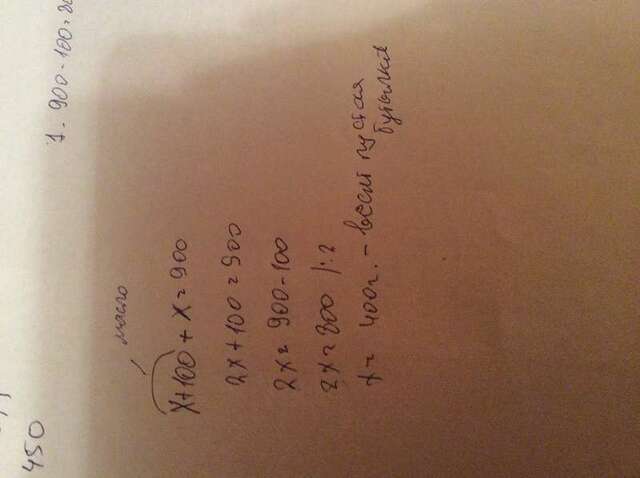 450
1. 900-100=80
масло
x+100+x=900
2x+100=900
2x=900-100
2x=800 /:2
x=400г. - весит пустая
бутылка